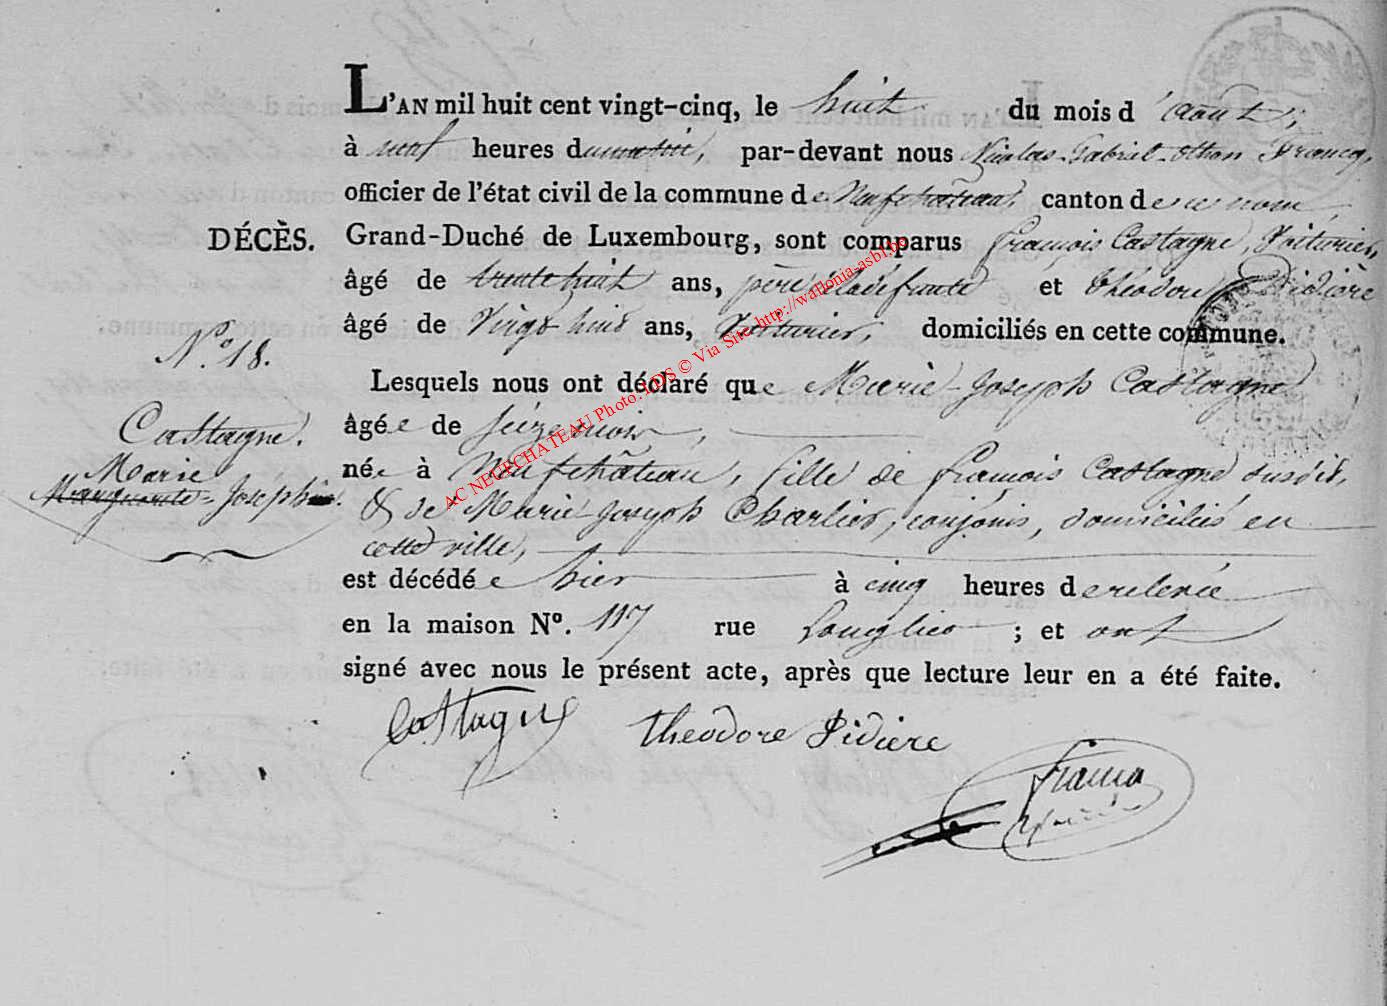 L'AN mil huit cent vingt-cinq, le huit du mois d'août,
à neuf heures du matin, par-devant nous Nicolas-Gabriel-Othon Francq,
officier de l'état civil de la commune de Neufchâteau, canton de ce nom,
DÉCÈS.
Grand-Duché de Luxembourg, sont comparus François Castagne, Voiturier,
âgé de trente huit ans, père de la défunte et Théodore Didière
âgé de Vingt huit ans, Voiturier, domiciliés en cette commune.
N.° 18.
Lesquels nous ont déclaré que Marie-Joseph Castagne
Castagne.
âgée de seize mois,
Marie
née à Neufchâteau, fille de François Castagne susdit,
Marguerite-Joseph.
& de Marie-Joseph Charlier, conjoints, domiciliés en
cette ville,
est décédée hier à cinq heures de relevée
en la maison N°. 117 rue Longlier ; et ont
signé avec nous le présent acte, après que lecture leur en a été faite.
Castagne Theodore Didiere
Francq
AC NEUFCHATEAU Photo. LDS © Via Site http://wallonia-asbl.be